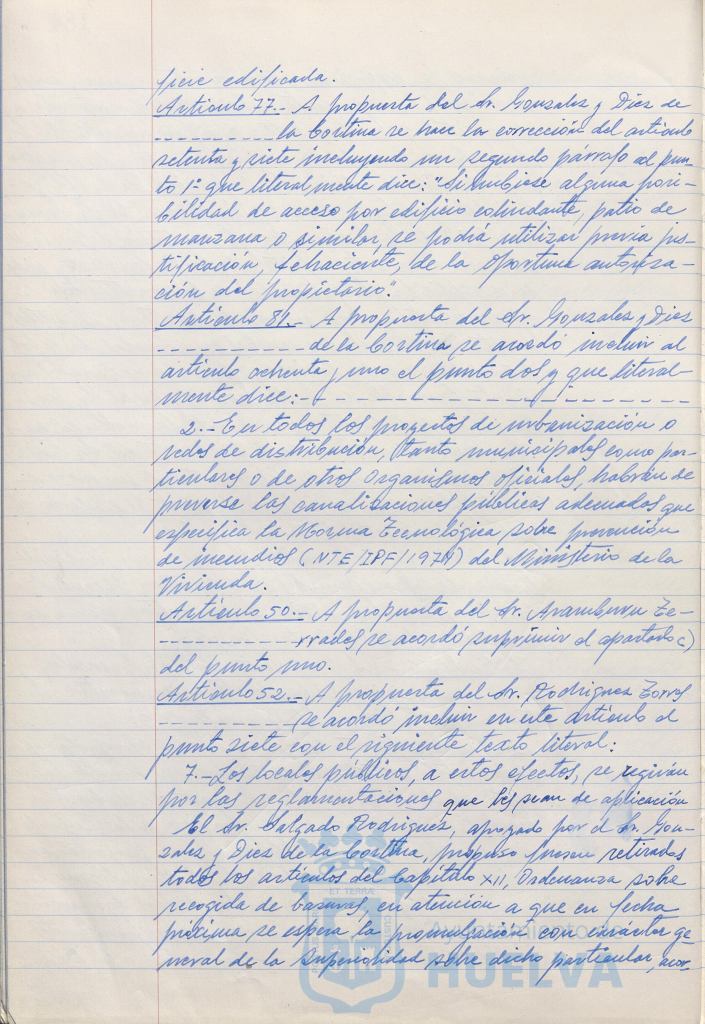 ficie edificada.
Artículo 77.- A propuesta del Sr. Gonzalez y Diez de
---------- la Cortina se hace la corrección del artículo
setenta y siete incluyendo un segundo párrafo al pun-
to 1º que literalmente dice: "Si hubiese alguna posi-
bilidad de acceso por edificio colindante, patio de
manzana o similar, se podrá utilizar previa jus-
tificación, fehaciente, de la oportuna autoriza-
ción del propietario".
Artículo 81.- A propuesta del Sr. Gonzalez y Diez
---------- de la Cortina se acordó incluir al
artículo ochenta y uno el punto dos y que literal-
mente dice:- - - - - - - - - - - - - - - - -
2.- En todos los proyectos de urbanización o
redes de distribución, tanto municipales como par-
ticulares o de otros Organismos oficiales, habrán de
preverse las canalizaciones públicas adecuadas que
especifica la Norma Tecnológica sobre prevención
de incendios (NTE/IPF/1974) del Ministerio de la
Vivienda.
Artículo 50.- A propuesta del Sr. Aramburu Te-
---------- rrades se acordó suprimir el apartado c)
del punto uno.
Artículo 52.- A propuesta del Sr. Rodriguez Torres
---------- se acordó incluir en este artículo el
punto siete con el siguiente texto literal:
7.- Los locales públicos, a estos efectos, se regirán
por las reglamentaciones que les sean de aplicación
El Sr. Salgado Rodriguez, apoyado por el Sr. Gon-
zalez y Diez de la Cortina, propuso fuesen retirados
todos los artículos del Capítulo XII, Ordenanza sobre
recogida de basuras, en atención a que en fecha
próxima se espera la promulgación con carácter ge-
neral de la Superioridad sobre dicho particular, acor-
Ayuntamiento
HUELVA